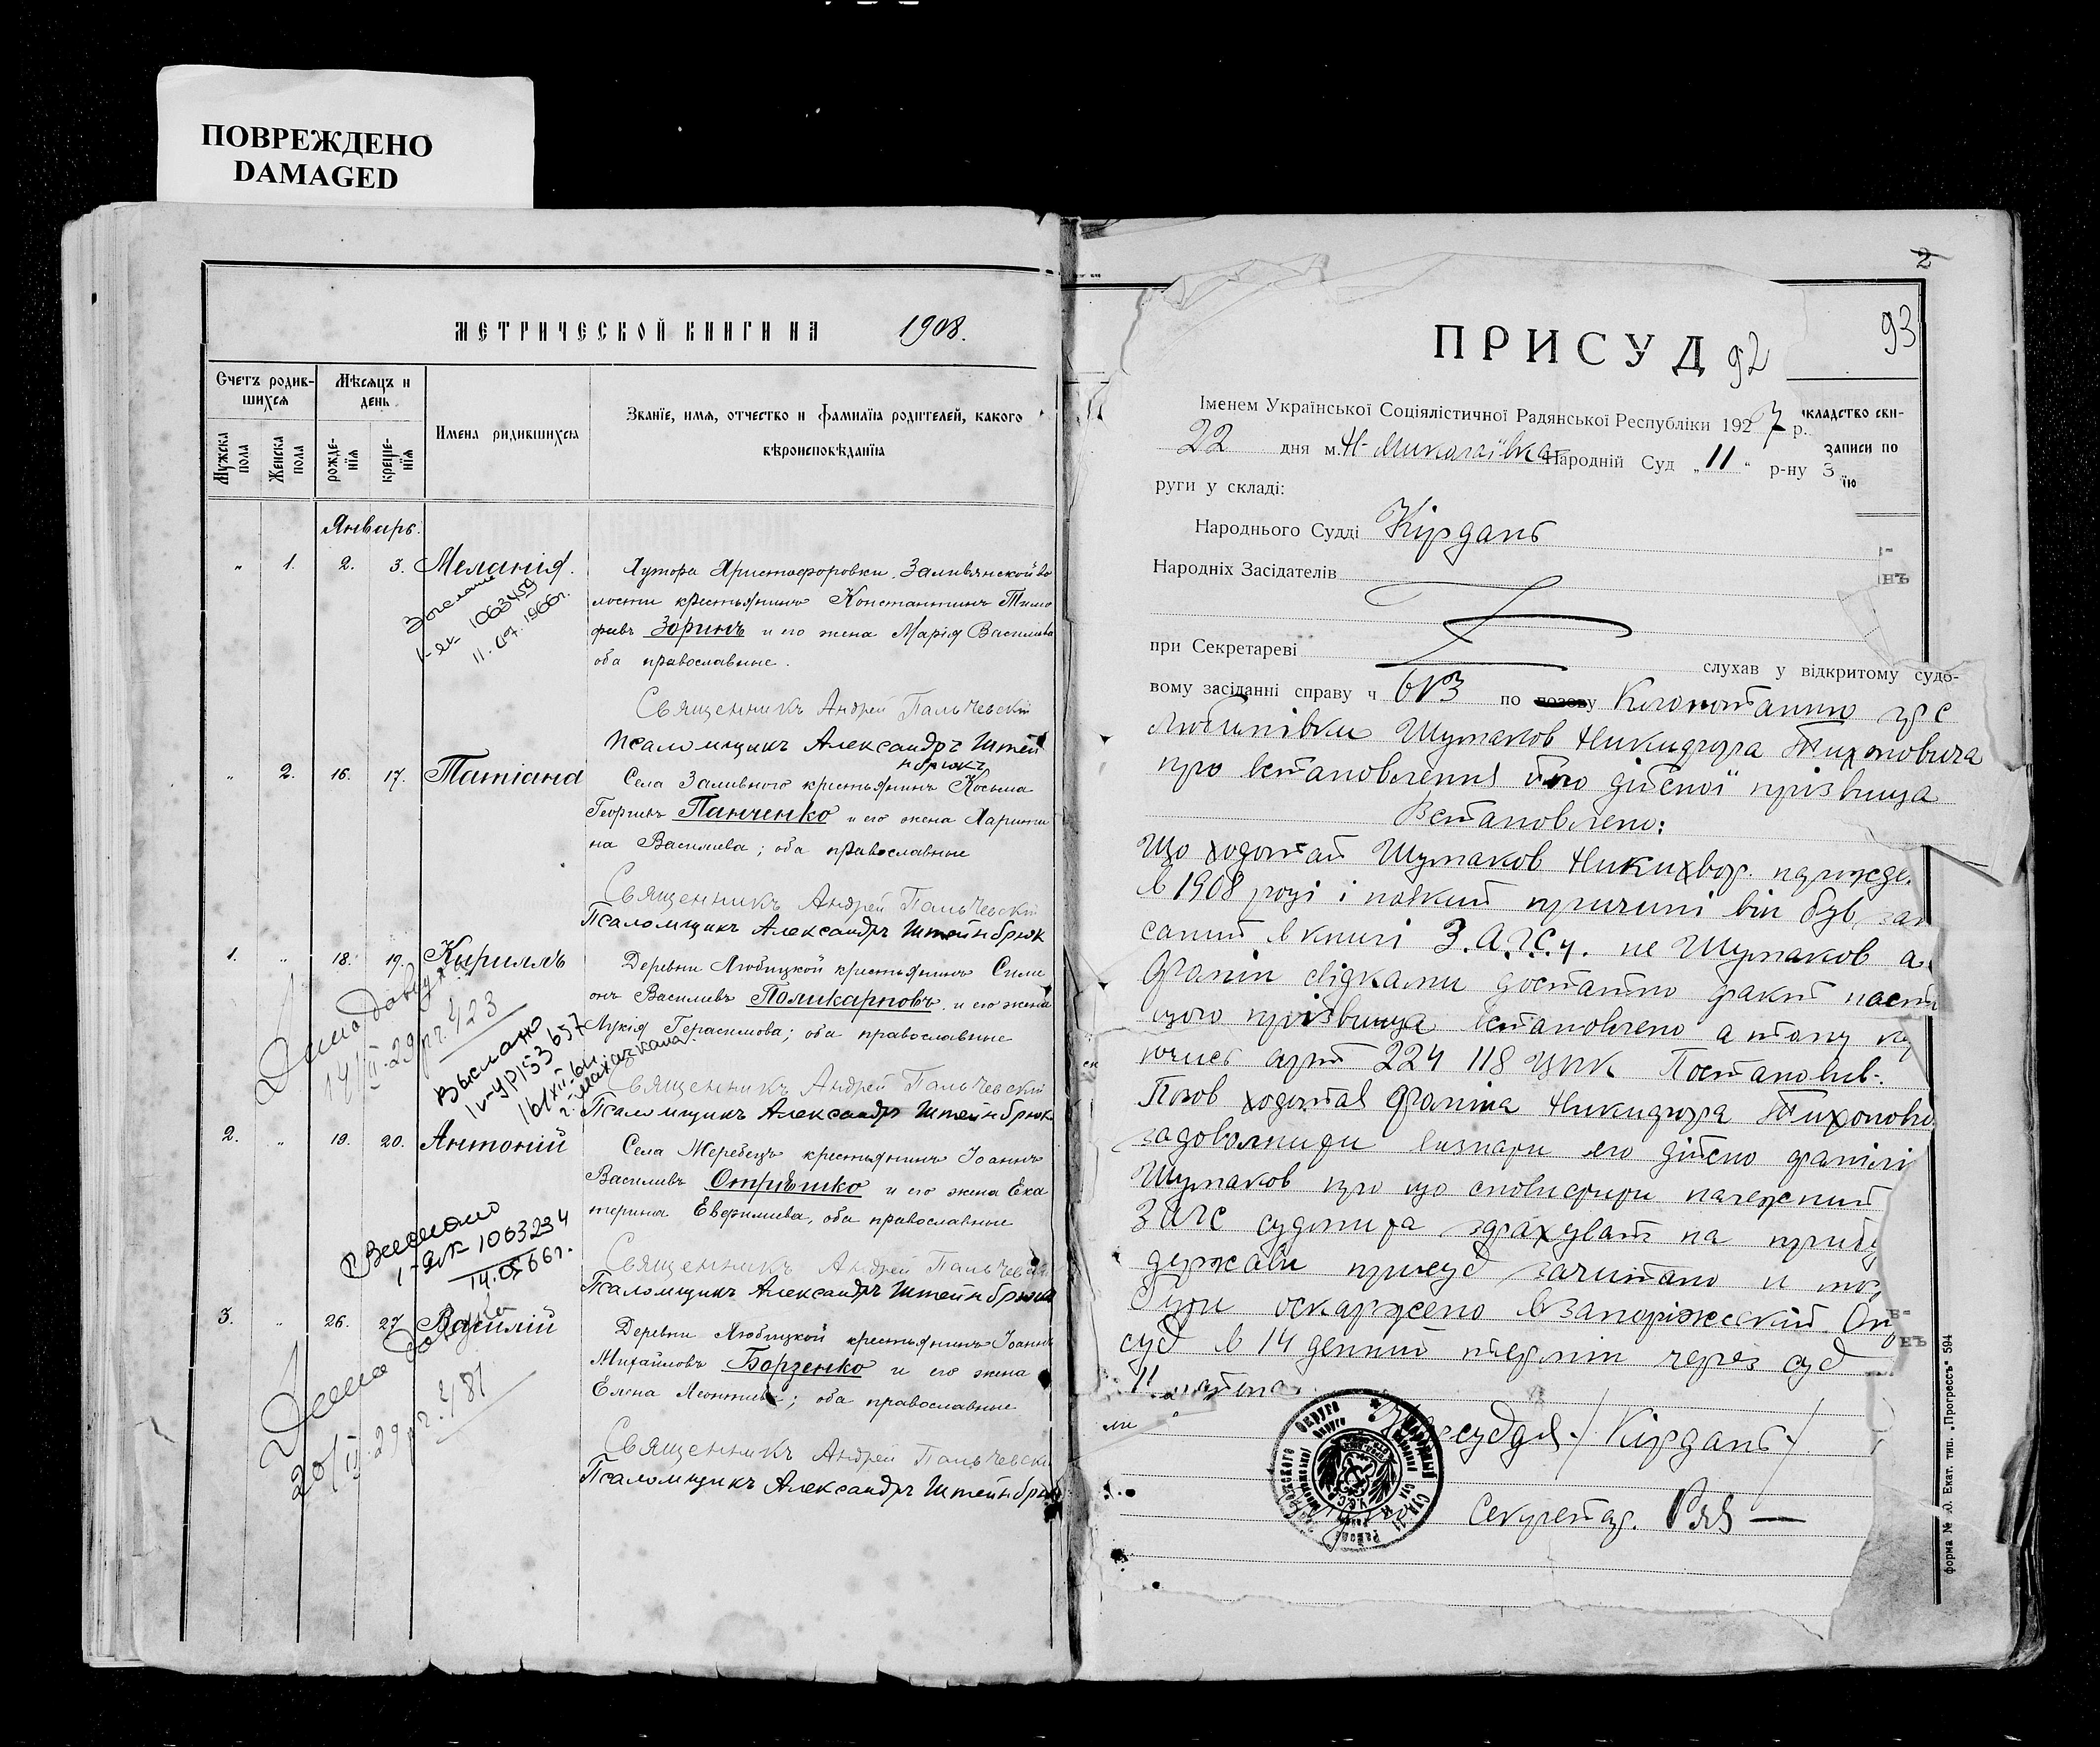 ПОВРЕЖДЕНО
DAMAGED
МЕТРИЧЕСКОЙ КНИГИ НА 1908.
Счетъ родив-
шихся
Мѣсяцъ и
день
Мужска
пола
Женска
пола
рожде-
нія
креще-
нія
Имена родившихся
Званіе, имя, отчество и фамилія родителей, какого
вѣроисповѣданія
Январь.
" 1. 2. 3. Меланія.
Хутора Христофоровки, Заливянской во
лости крестьянинъ Константинъ Тимо
феевъ Зоринъ и его жена Марія Васильева
оба православные.
1063459
11.07.1966г.
Священникъ Андрей Пальчевскій
Псаломщикъ Александръ Штей
нбрюкъ
" 2. 16. 17. Татіана
Села Заливного крестьянинъ Косьма
Георгіевъ Панченко и его жена Харити
на Васильева; оба православные
Священникъ Андрей Пальчевскій
Псаломщикъ Александръ Штейнбрюк
1. " 18. 19. Кириллъ
Деревни Любицкой крестьянинъ Симе
онъ Васильевъ Поликарповъ и его жена
Лукія Герасимова; оба православные
14/II-29р. 423
Выслано
IV-УР 153657
Священникъ Андрей Пальчевскій
Псаломщикъ Александръ Штейнбрюк
2. " 19. 20. Антоній
Села Жеребецъ крестьянинъ Іоаннъ
Васильевъ Отрѣшко и его жена Ека
терина Евфимиева, оба православные
1063234
14.05.66г.
Священникъ Андрей Пальчевскій
Псаломщикъ Александръ Штейнбрюк
3. " 26. 27 Василій
Деревни Любицкой крестьянинъ Іоаннъ
Михайловъ Борзенко и его жена
Елена Леонтьева; оба православные
20/II-29р. 481
Священникъ Андрей Пальчевскі
Псаломщикъ Александръ Штейнбрюк
2
93
ПРИСУД 92
Іменем Української Соціялістичної Радянської Республіки 1927 р.
22 дня м. Н-Миколаївка Народній Суд „11" р-ну З
руги у складі:
Народнього Судді Кірдань
Народніх Засідателів
при Секретареві слухав у відкритому судо-
вому засіданні справу ч 613 по позову Клопотанню гр с
Любимівки Шумаков Никифора Тихоновича
про встановлення його дійсної прізвища
Встановлено:
Що ходотай Шумаков Никихвор. нарожде.
в 1908 році і по якій причині він був
саний в книгі З.А.Г.С.у. не Шумаков а
Фанін свідками достатно факт
цього прізвища встановлено а тому
ючись арт 224 118 ЦПК Постановив:
Позов ходотая Фаніна Никифора Тихонови
задовольнити визнати его дійсно
Шумаков про що сповистити належний
ЗАГС судмита на
держави присуд зачитано и
бути оскаржено в Запоріжський Ок
суд в 14 денний термін через суд
11
Нарсуддя /Кірдань/
Секретар.
кладство сви-
записи по
форма № 10. Екат. тип. „Прогрессъ" 594